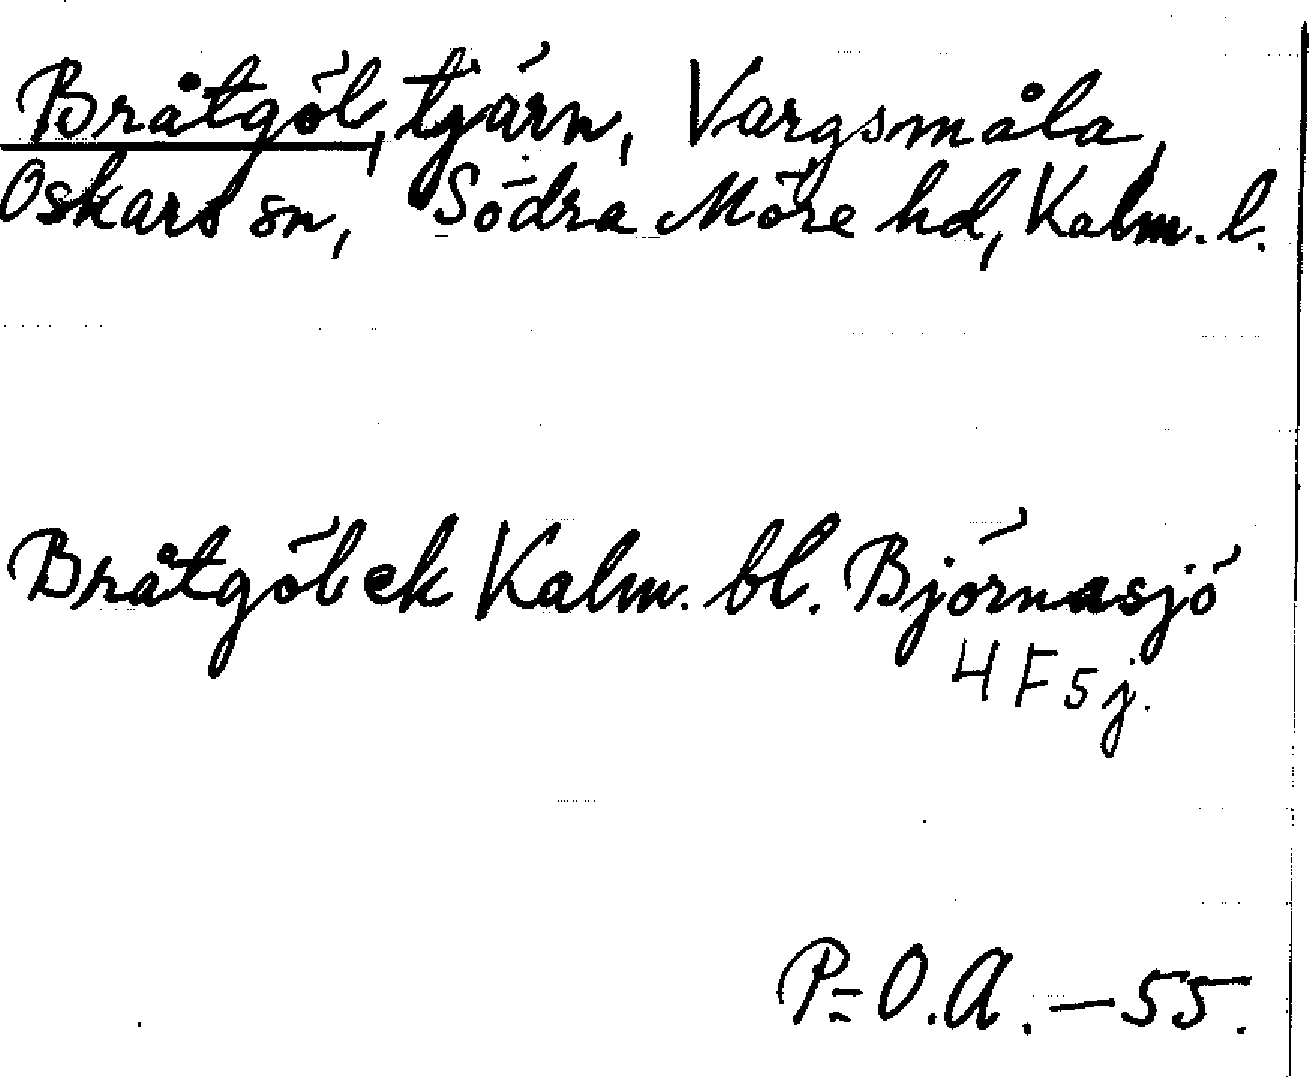 Bråtgöl, tjärn, Vargsmåla,
Oskars sn, Södra Möre hd, Kalm. l.
Bråtgöl ek Kalm. bl. Björnasjö
4 F sj.
P=O.A.-55.